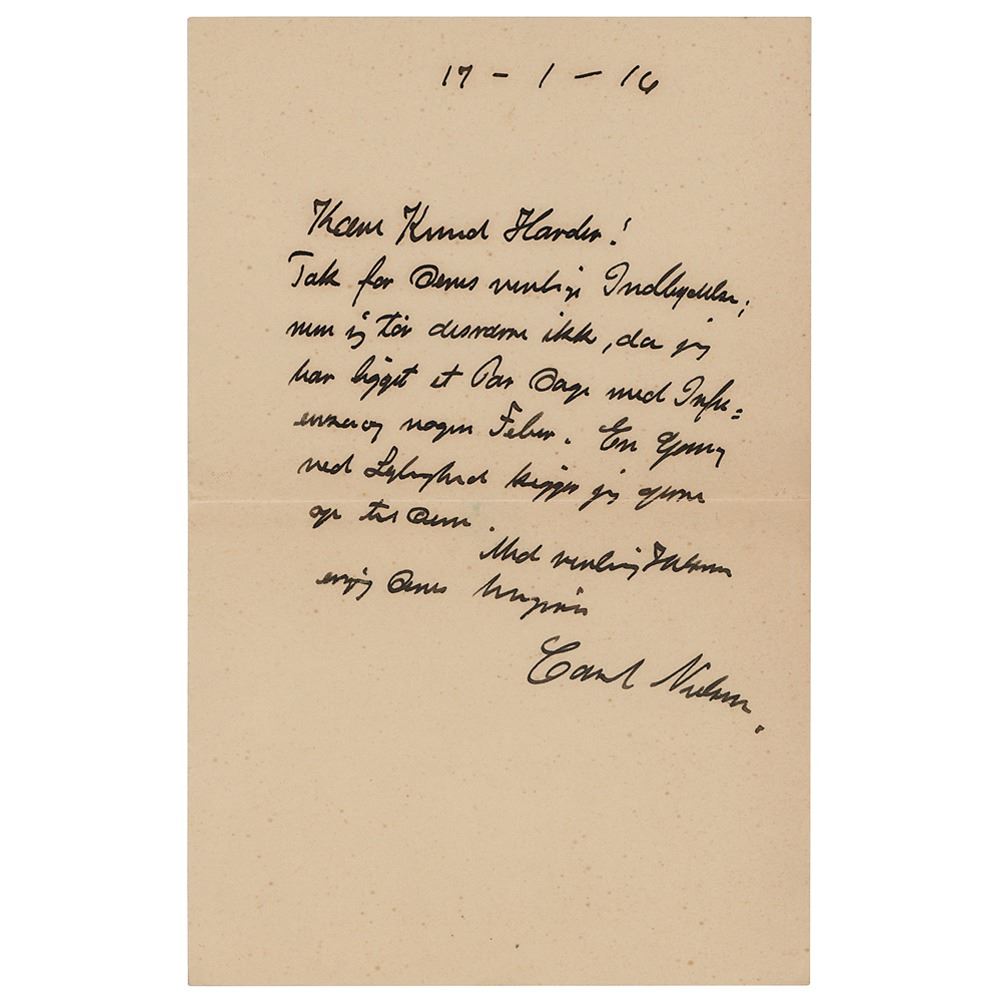 17 - 1 - 16
Kære Knud Harder!
Tak for Deres venlige Indbydelse;
men jeg tør desværre ikke, da jeg
har ligget et Par Dage med Influ=
enza og nogen Feber. En Gang
ved Lejlighed kigger jeg gerne
op til Dem.
Med venlig Hilsen
Deres hengivne
Carl Nielsen.